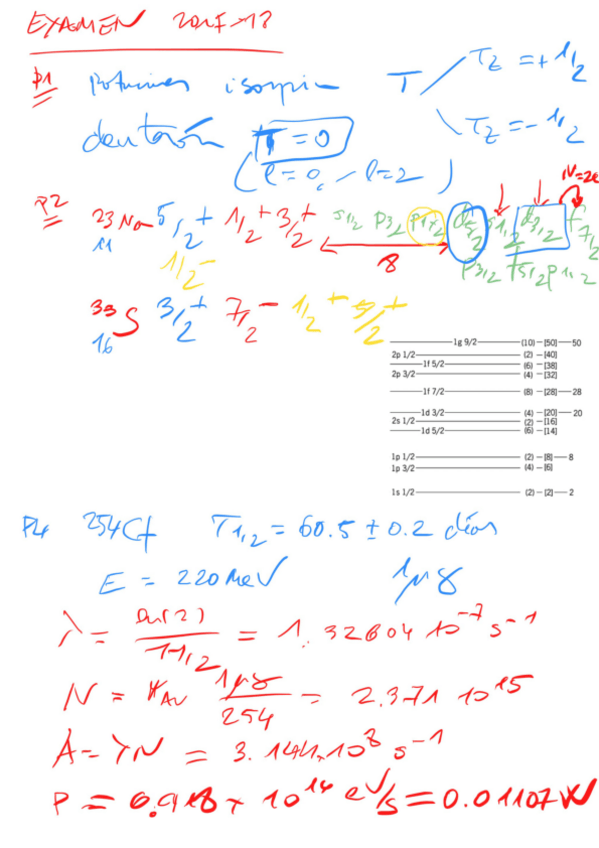 EXAMEN
P1 isospin T Tz = + 1/2
deuterón T = 0 Tz = - 1/2
(l = 0, l = 2)
P2 23 Na 11 5/2+ 1/2+ 3/2+ s1/2 p3/2 p1/2 d5/2 s1/2 d3/2 f7/2
1/2- 8 p3/2 f5/2 p1/2
33 S 16 3/2+ 7/2- 1/2+ 5/2+
1g 9/2 (10) – [50] — 50
2p 1/2 (2) – [40]
1f 5/2 (6) – [38]
2p 3/2 (4) – [32]
1f 7/2 (8) – [28] — 28
1d 3/2 (4) – [20] — 20
2s 1/2 (2) – [16]
1d 5/2 (6) – [14]
1p 1/2 (2) – [8] — 8
1p 3/2 (4) – [6]
1s 1/2 (2) – [2] — 2
P4 254Cf T1/2 = 60.5 ± 0.2 días
E = 220 MeV 1μg
λ = ln(2) / T1/2 = 1.32604 10^-7 s^-1
N = NAv 1μg / 254 = 2.371 10^15
A = λN = 3.144 · 10^8 s^-1
P = 6.918 × 10^16 eV/s = 0.01107 W